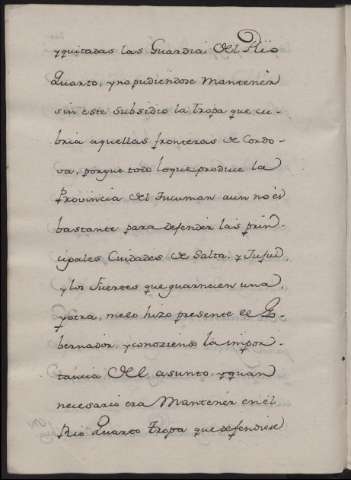 yquitadas las Guardia del Rio
Quarto, yno pudiendose Mantener
sin este subsidio la tropa que cu-
bria aquellas fronteras de Cordo-
va, porque todo loque produce la
Provincia del Tucuman aun no es
bastante para defender las prin-
cipales Ciudades de Salta, y Jujui,
ylos fuertes que guarnecen una,
yotra, melo hizo presente el Go-
bernador, yconoziendo la impor-
tancia del asunto, yquan
necesario era Mantener en el
Rio Quarto tropa que defendiese